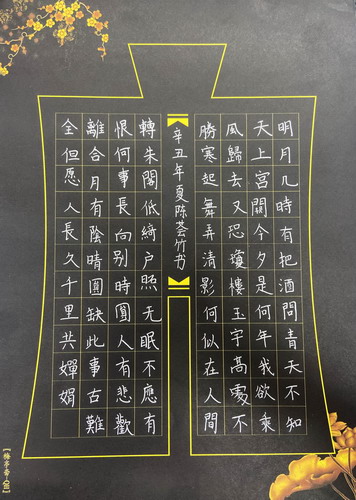 明月几時有把酒問青天不知
天上宮闕今夕是何年我欲乘
風歸去又恐瓊樓玉宇高處不
勝寒起舞弄清影何似在人間
辛丑年夏陈荟竹书
轉朱閣低綺户照无眠不應有
恨何事長向别時圓人有悲歡
離合月有陰晴圓缺此事古難
全但愿人長久千里共嬋娟